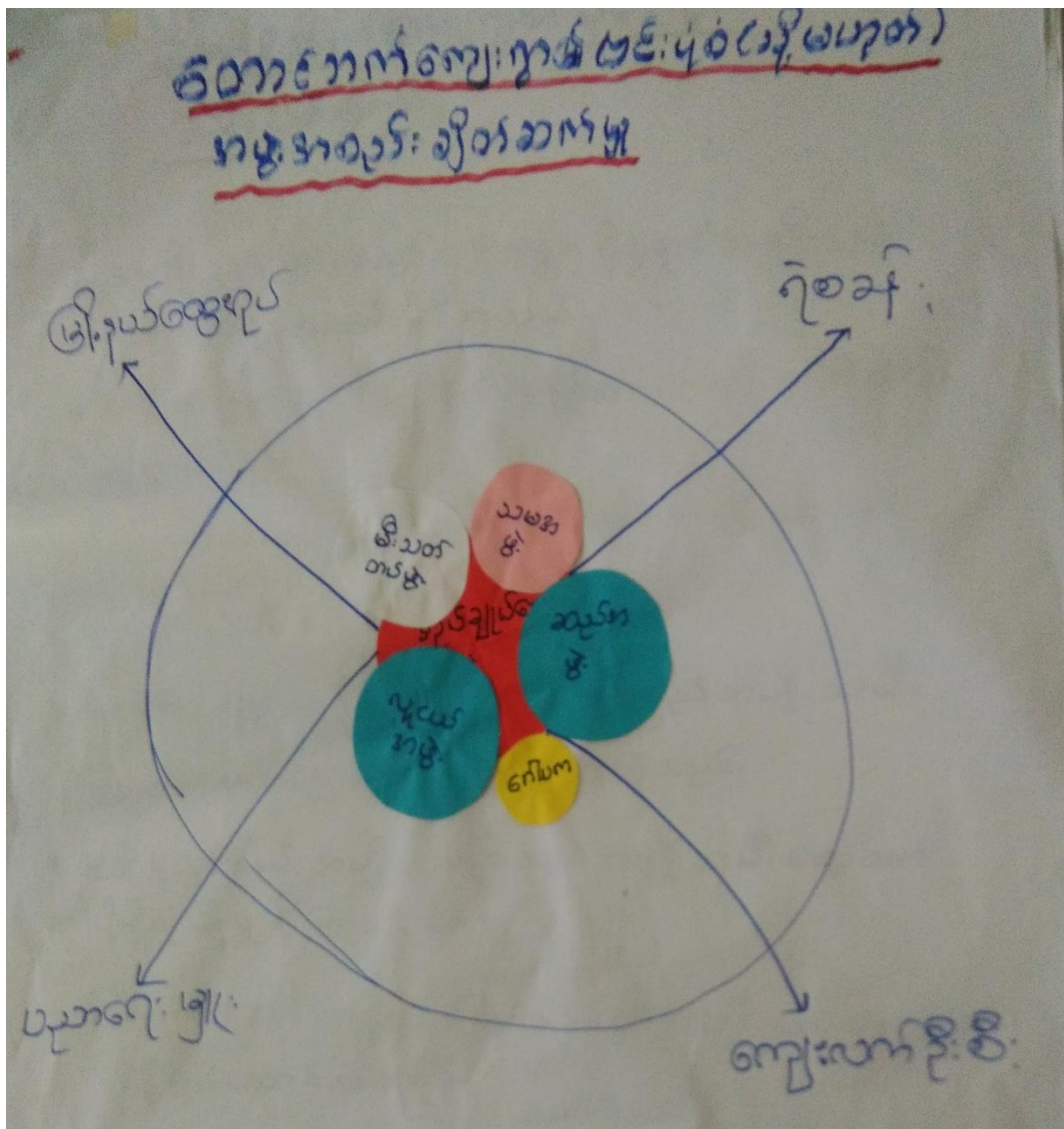 ကျေးရွာ ဗင်းပုံစံ (သို့မဟုတ်)
အဖွဲ့အစည်း ချိတ်ဆက်မှု
မြို့နယ်ထွေအုပ်
ရဲစခန်း
မီးသတ်
တပ်ဖွဲ့
သမအာ
ဖွဲ့
အုပ်ချုပ်ရေ
ဆည်အာ
ဖွဲ့
လူငယ်
အဖွဲ့
ဂေါပက
ပညာရေးမှူး
ကျေးလက်ဦးစီး